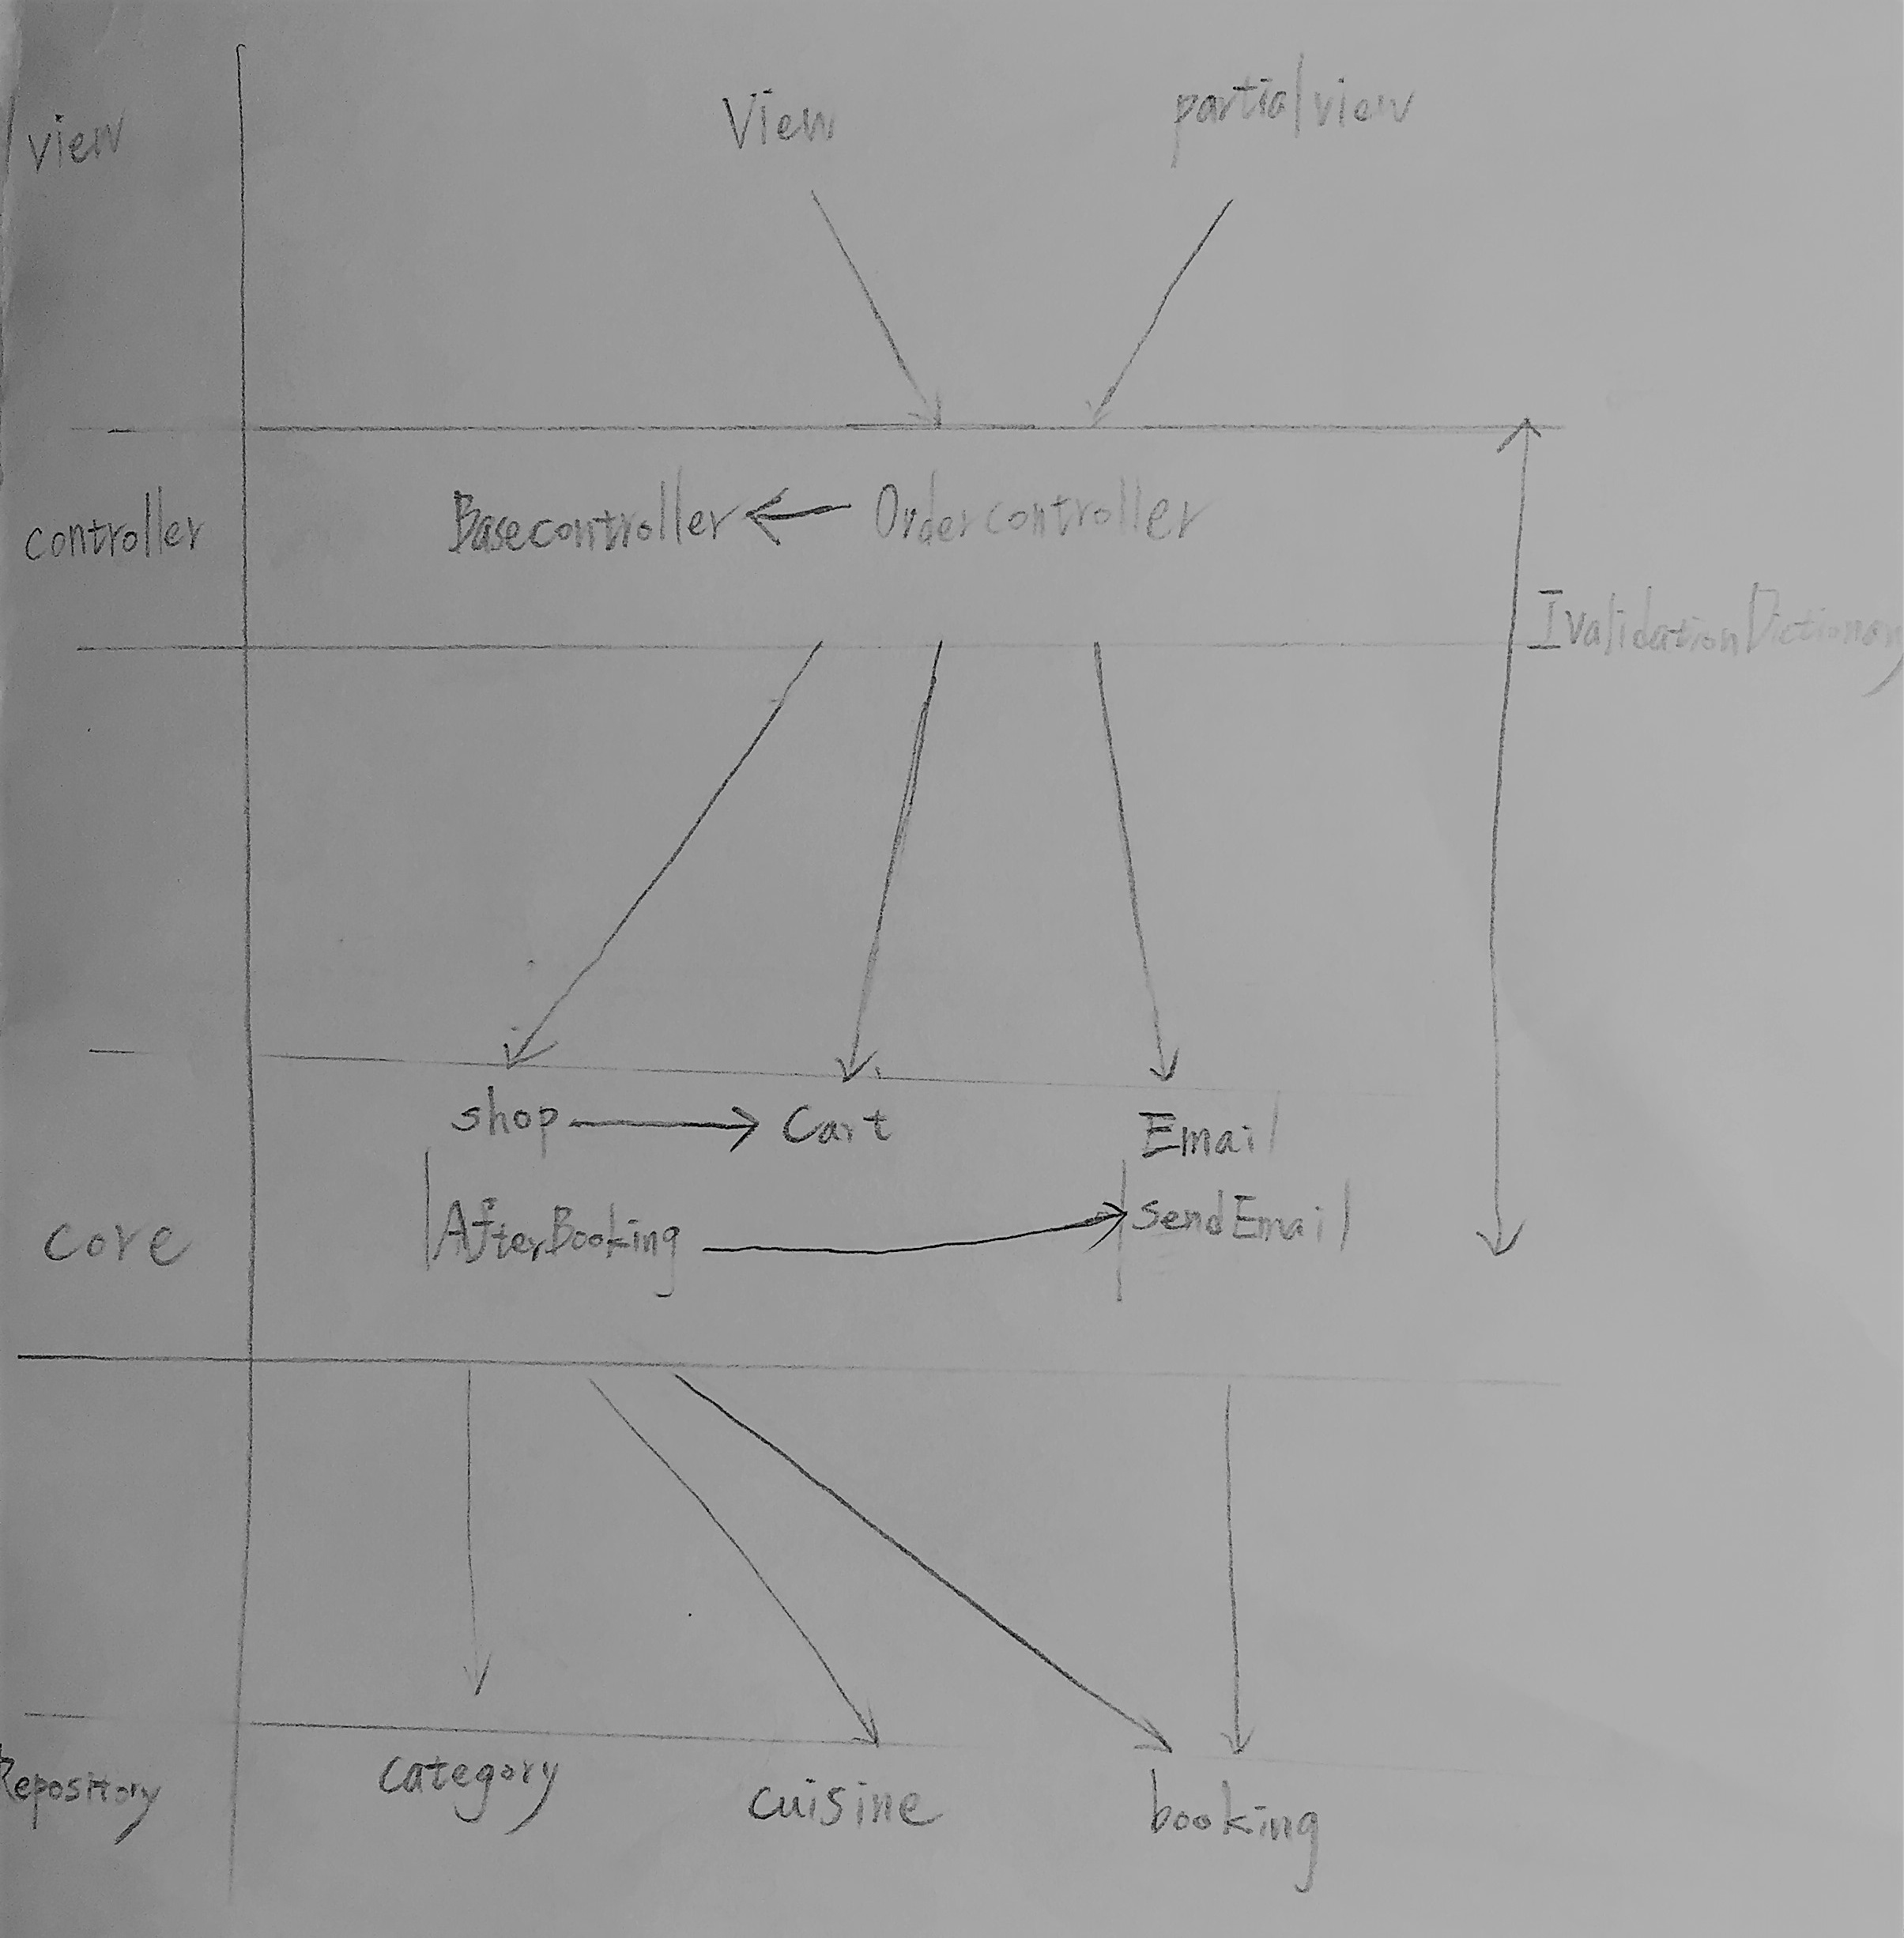 view
View
partialview
controller
Basecontroller
Ordercontroller
IvalidationDictionary
shop
Cart
Email
core
AfterBooking
SendEmail
Repository
category
cuisine
booking